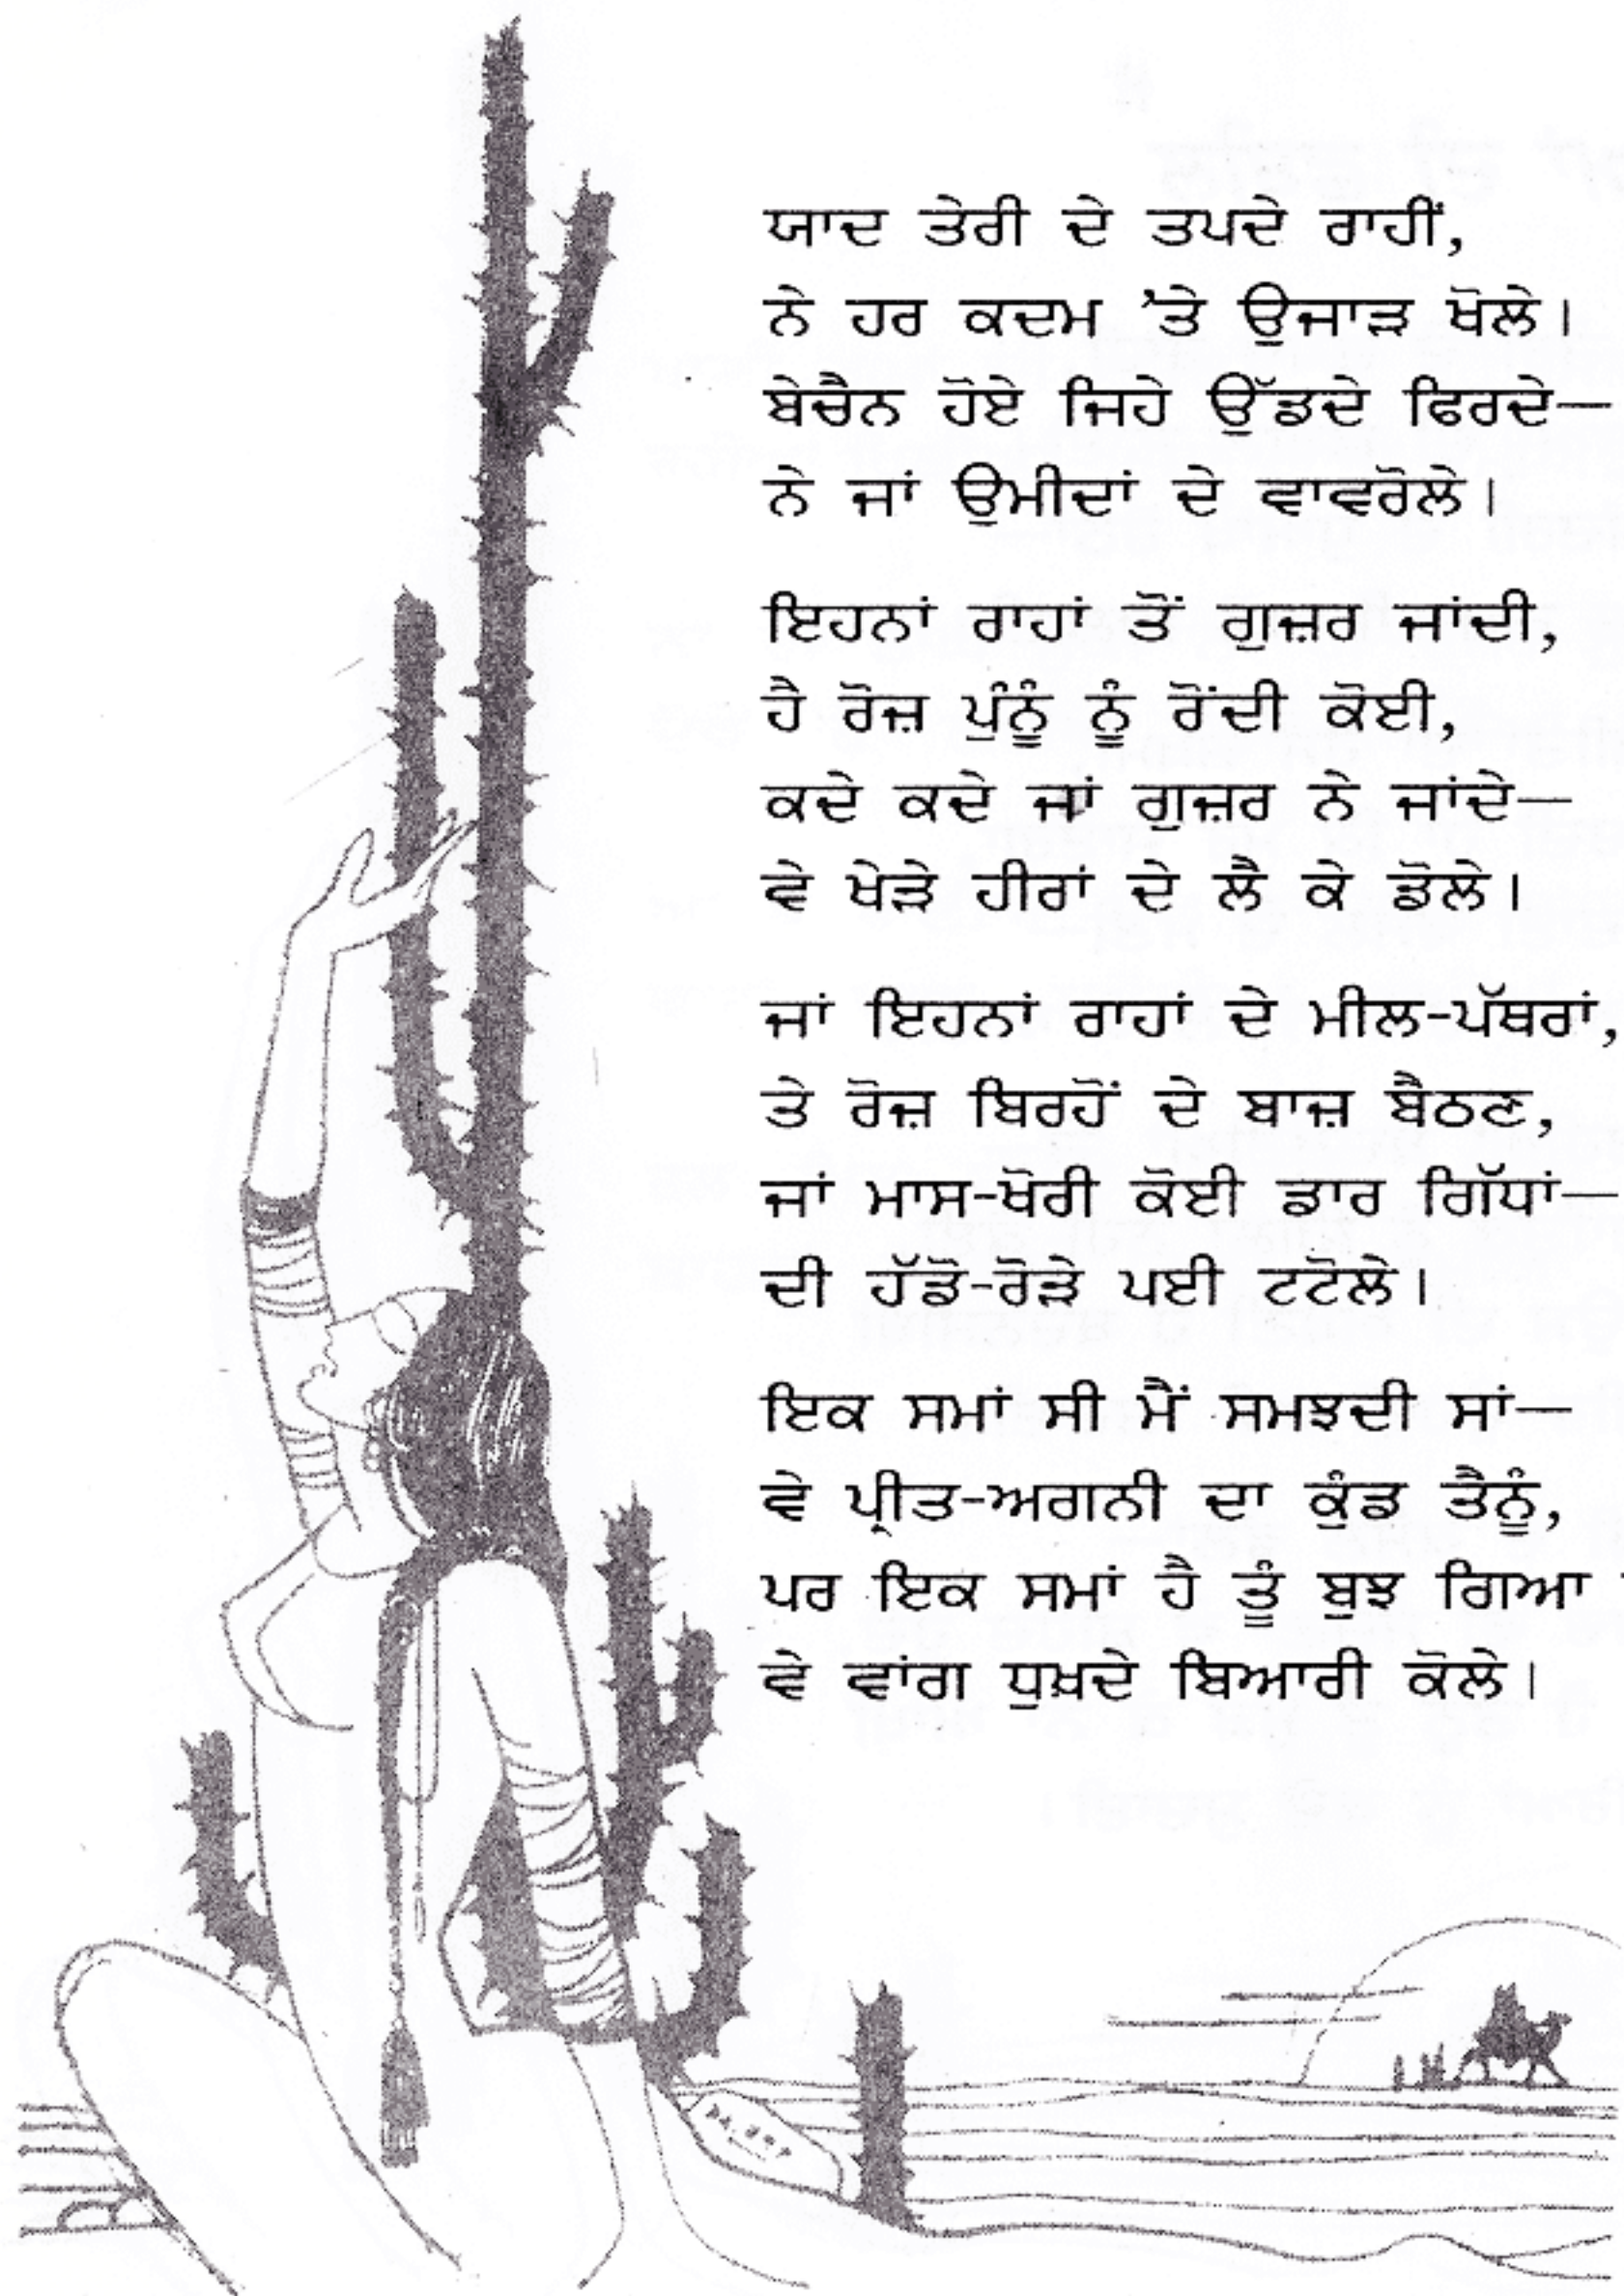 ਯਾਦ ਤੇਰੀ ਦੇ ਤਪਦੇ ਰਾਹੀਂ,
ਨੇ ਹਰ ਕਦਮ ’ਤੇ ਉਜਾੜ ਖੋਲੇ।
ਬੇਚੈਨ ਹੋਏ ਜਿਹੇ ਉੱਡਦੇ ਫਿਰਦੇ—
ਨੇ ਜਾਂ ਉਮੀਦਾਂ ਦੇ ਵਾਵਰੋਲੇ।
ਇਹਨਾਂ ਰਾਹਾਂ ਤੋਂ ਗੁਜ਼ਰ ਜਾਂਦੀ,
ਹੈ ਰੋਜ਼ ਪੁੰਨੂੰ ਨੂੰ ਰੋਂਦੀ ਕੋਈ,
ਕਦੇ ਕਦੇ ਜਾਂ ਗੁਜ਼ਰ ਨੇ ਜਾਂਦੇ—
ਵੇ ਖੇੜੇ ਹੀਰਾਂ ਦੇ ਲੈ ਕੇ ਡੋਲੇ।
ਜਾਂ ਇਹਨਾਂ ਰਾਹਾਂ ਦੇ ਮੀਲ-ਪੱਥਰਾਂ,
ਤੇ ਰੋਜ਼ ਬਿਰਹੋਂ ਦੇ ਬਾਜ਼ ਬੈਠਣ,
ਜਾਂ ਮਾਸ-ਖੋਰੀ ਕੋਈ ਡਾਰ ਗਿੱਧਾਂ—
ਦੀ ਹੱਡੋ-ਰੋੜੇ ਪਈ ਟਟੋਲੇ।
ਇਕ ਸਮਾਂ ਸੀ ਮੈਂ ਸਮਝਦੀ ਸਾਂ—
ਵੇ ਪ੍ਰੀਤ-ਅਗਨੀ ਦਾ ਕੁੰਡ ਤੈਨੂੰ,
ਪਰ ਇਕ ਸਮਾਂ ਹੈ ਤੂੰ ਬੁਝ ਗਿਆ
ਵੇ ਵਾਂਗ ਧੁਖ਼ਦੇ ਬਿਆਰੀ ਕੋਲੇ।